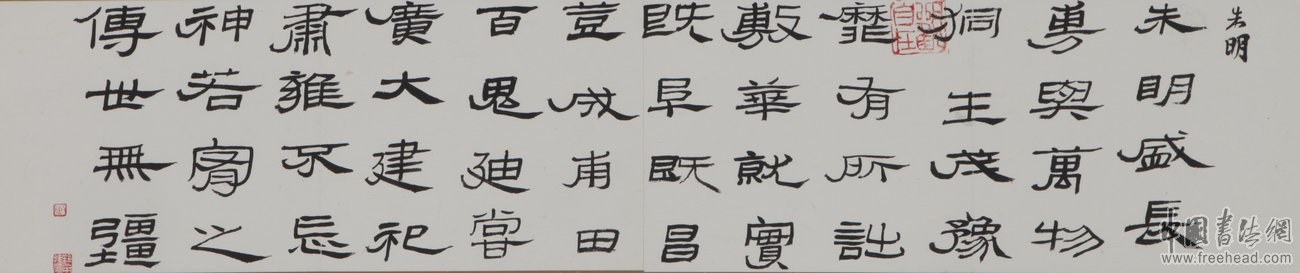 朱明
朱明盛長
旉與萬物
桐生茂豫
靡有所詘
敷華就實
既阜既昌
登成甫田
百鬼迪嘗
廣大建祀
肅雍不忘
神若宥之
傳世無疆
中國書法網
www.freehead.com